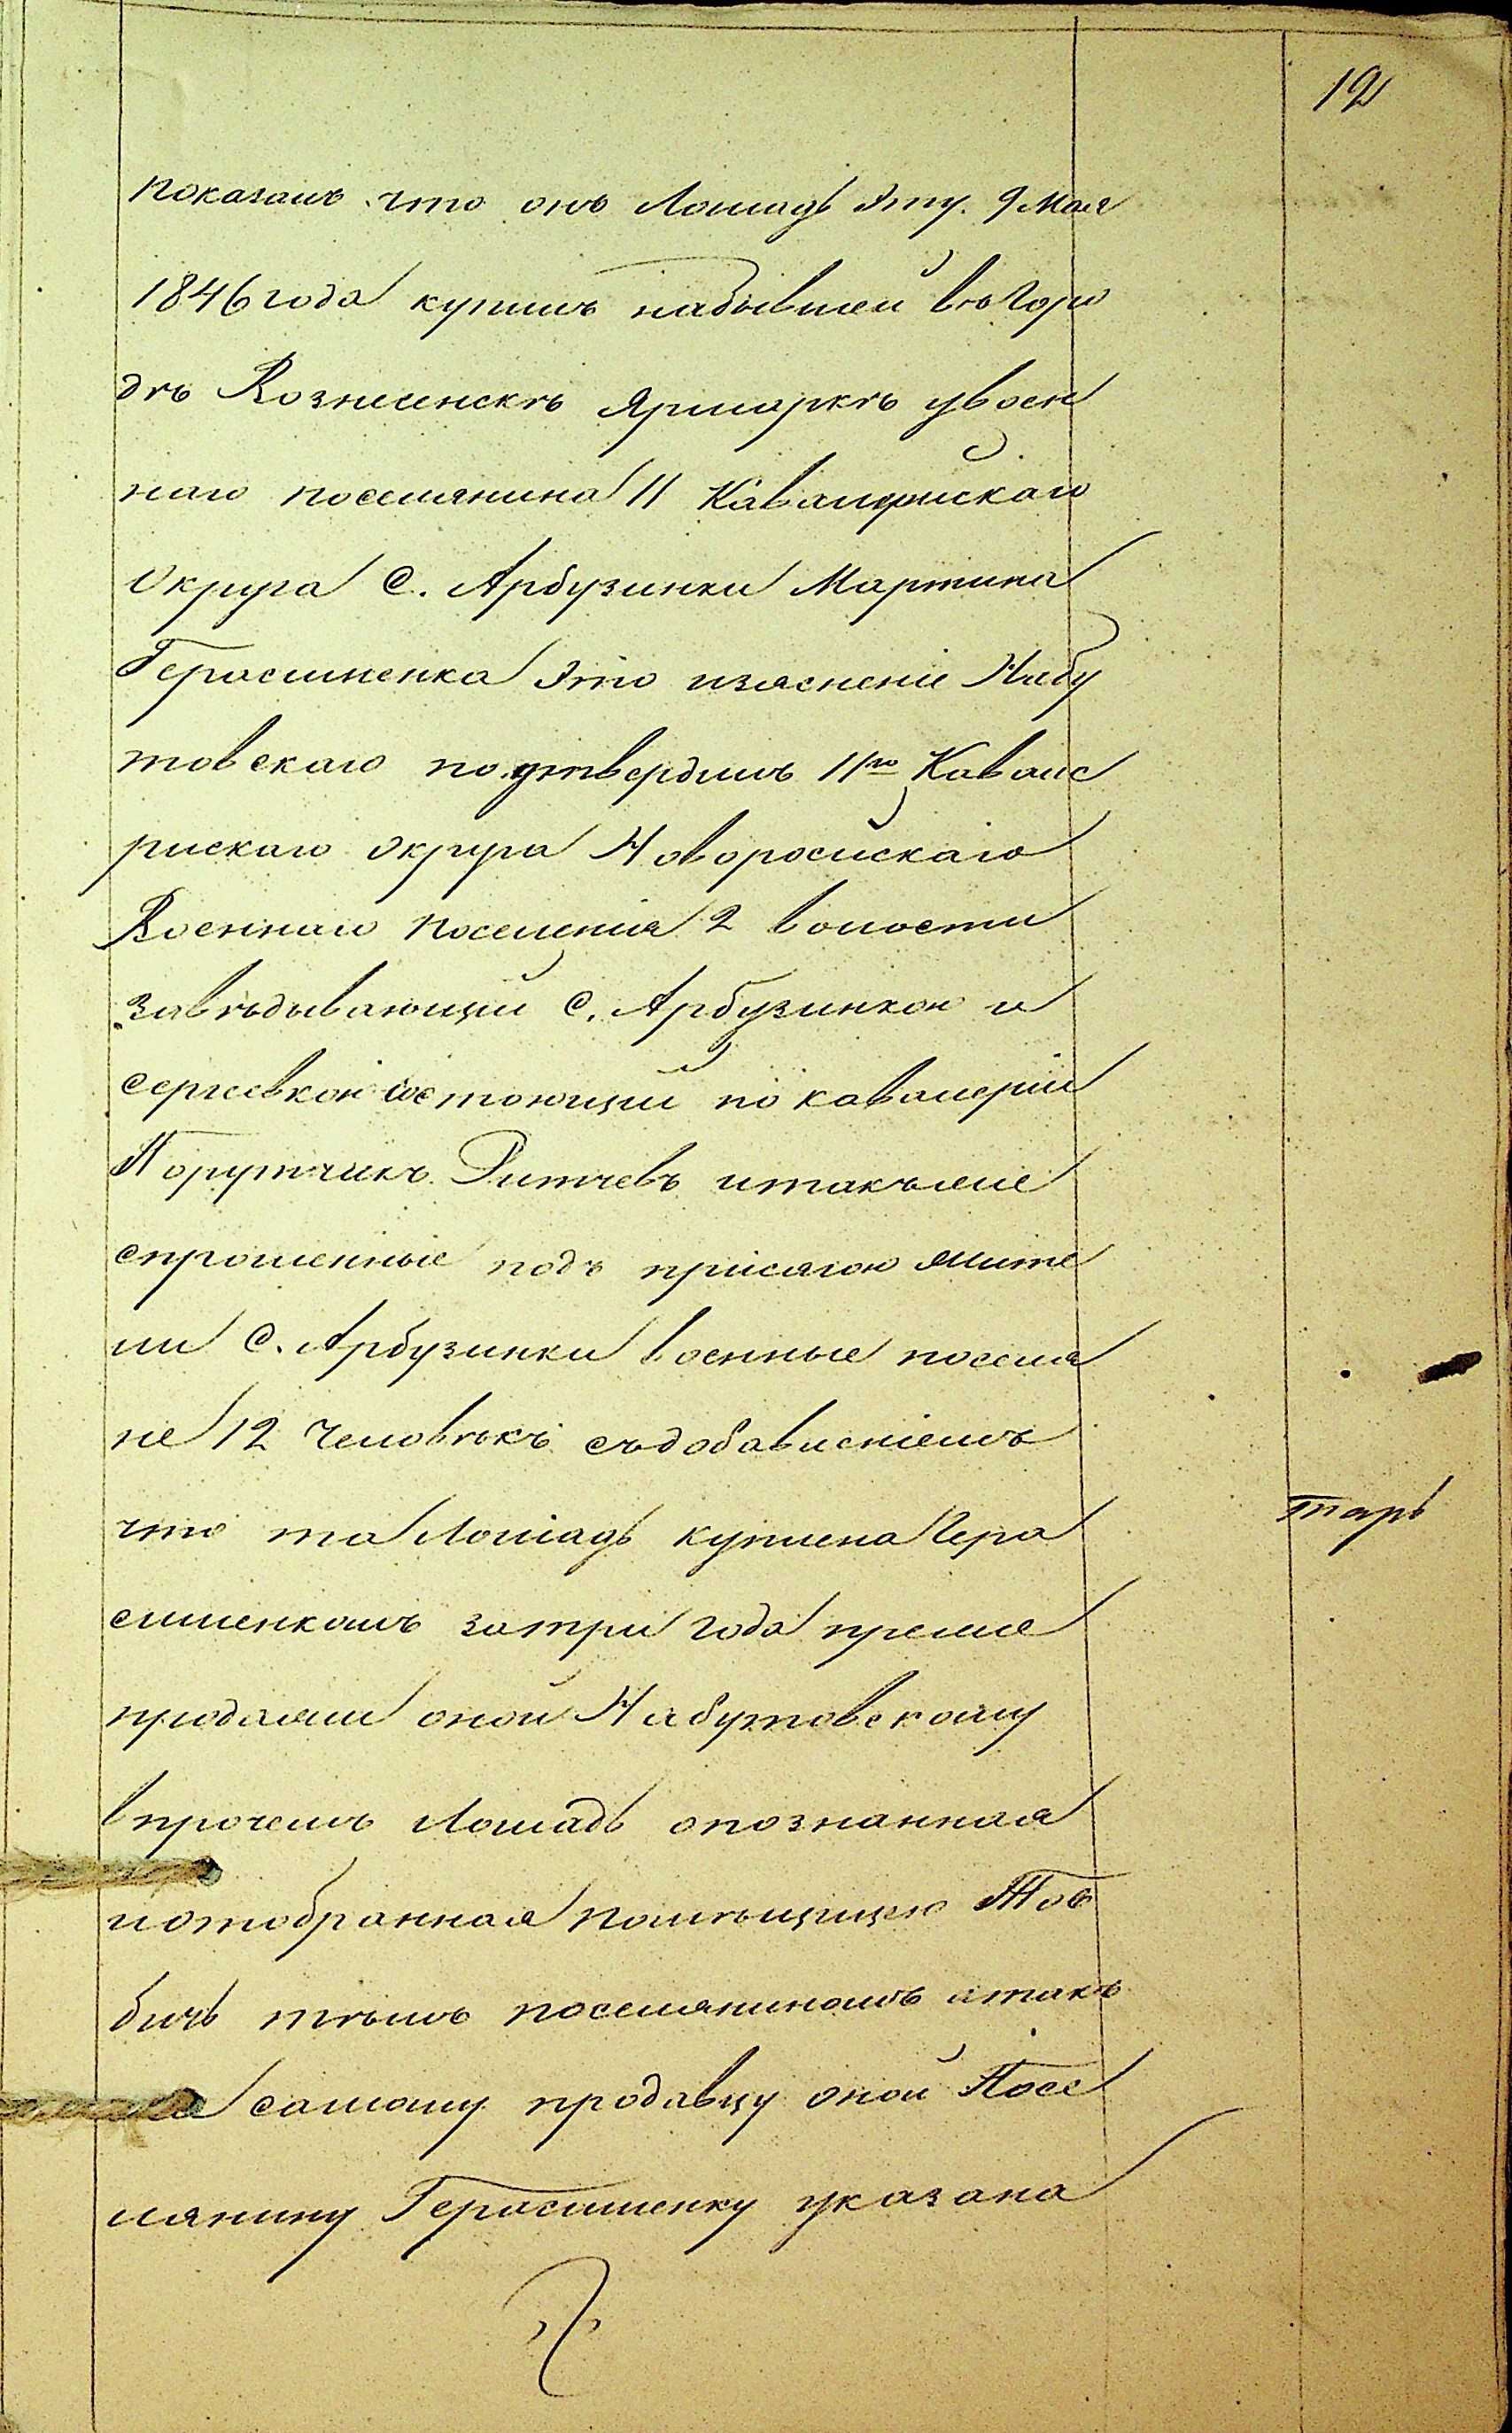 12
показалъ что онъ Лошадь эту 9 Мая
1846 года купилъ набывшей въ Горо
дѣ Вознесенскѣ Ярмаркѣ увоен
наго поселянина 11 Кавалерійскаго
Округа С. Арбузинки Мартина
Герасименка это изясненіе Набу
товскаго подтвердилъ 11го Кавале
рискаго округа Новоросискаго
Военнаго поселенія 2 волости
завѣдывающий С. Арбузинкою и
Сергеевкою состоющий по кавалеріи
Порутчикъ итакъже
спрошенные подъ присягою жите
ли С. Арбузинки военные поселя
не 12 человѣкъ съдобавленіемъ
что та Лошадь куплена Гера
сименкомъ затри года прежде
продажи оной Набутовскому
впрочемъ Лошадь опознанная
иотобранная помѣщицею Тов
бичь тѣмъ поселяниномъ итакъ
самому продавцу оной Посе
лянину Герасименку указана
тарь